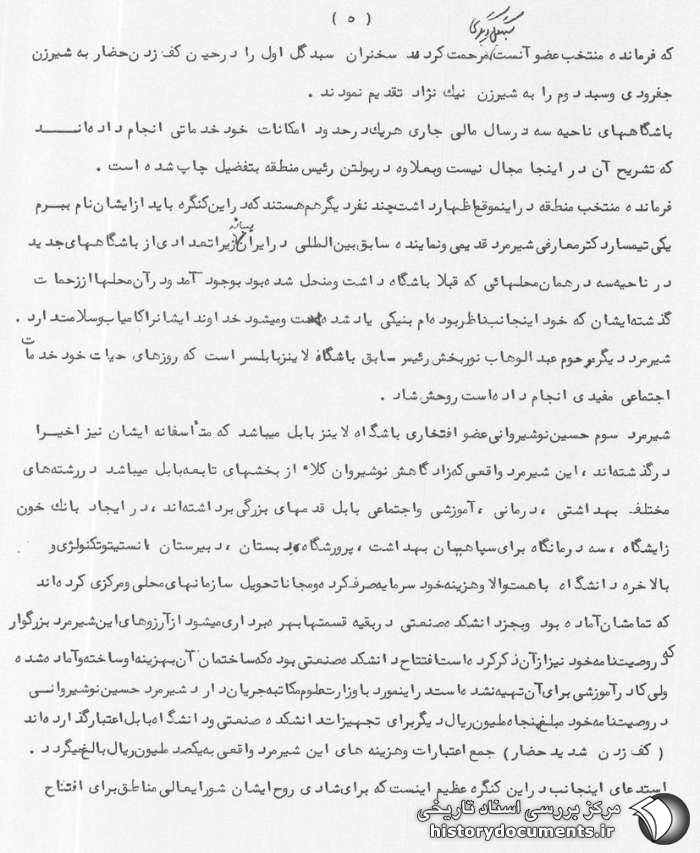 ( ٥ )
که فرمانده منتخب عضو آنست مرحمت کردند سخنران سبد گل اول را درحین کف زدن حضار به شیرزن
جغرودی وسبد دوم را به شیرزن نیك نژاد تقدیم نمودند .
باشگاههای ناحیه سه درسال مالی جاری هریك درحدود امکانات خود خدماتی انجام داده‌اند
که تشریح آن در اینجا مجال نیست وبعلاوه دربولتن رئیس منطقه بتفضیل چاپ شده است .
فرمانده منتخب منطقه دراینموقع اظهارداشت چند نفر دیگر هم هستند که دراین کنگره باید ازایشان نام ببرم
یکی تیمسار دکتر معارفی شیرمرد قدیمی ونماینده سابق بین‌المللی درایران زیرا تعدادی از باشگاههای جدید
در ناحیه سه درهمان محلهائی که قبلا باشگاه داشت ومنحل شده بود بوجود آمد ودرآن محلها اززحمات
گذشته ایشان که خود اینجانب ناظر بوده ام بنیکی یاد شده است ومیشود خداوند ایشانراکامیاب وسلامت دارد .
شیرمرد دیگر مرحوم عبدالوهاب نوربخش رئیس سابق باشگاه لاینز بابلسر است که روزهای حیات خود خدمات
اجتماعی مفیدی انجام داده است روحش شاد .
شیرمرد سوم حسین نوشیروانی عضو افتخاری باشگاه لاینز بابل میباشد که متأسفانه ایشان نیز اخیرا
درگذشته‌اند ، این شیرمرد واقعی که زادگاهش نوشیروان کلا از بخشهای تابعه بابل میباشد دررشته‌های
مختلف بهداشتی ، درمانی ، آموزشی واجتماعی بابل قدمهای بزرگی برداشته‌اند ، در ایجاد بانك خون
زایشگاه ، سه درمانگاه برای سپاهیان بهداشت ، پرورشگاه ، دبستان ، دبیرستان ، انستیتوتکنولژی و
بالاخره دانشگاه باهمت والا وهزینه خود سرمایه صرف کرده ومجانا تحویل سازمانهای محلی ومرکزی کرده‌اند
که تمامشان آماده بود وبجز دانشکده صنعتی دربقیه قسمتها بهره برداری میشود ازآرزوهای این شیرمرد بزرگوار که
دروصیت نامه خود نیز ازآن ذکر کرده است افتتاح دانشکده صنعتی بوده که ساختمان آن بهزینه او ساخته وآماده شده
ولی کادر آموزشی برای آن تهیه نشده است دراینمورد با وزارت علوم مکاتبه جریان دارد شیرمرد حسین نوشیروانی
دروصیت نامه خود مبلغ پنجاه ملیون ریال دیگر برای تجهیزات دانشکده صنعتی ودانشگاه بابل اعتبار گذارده‌اند
( کف زدن شدید حضار ) جمع اعتبارات وهزینه های این شیرمرد واقعی به یکصد ملیون ریال بالغ میگردد .
استدعای اینجانب دراین کنگره عظیم اینست که برای شادی روح ایشان شورایعالی مناطق برای افتتاح
مرکز بررسی اسناد تاریخی
historydocuments.ir